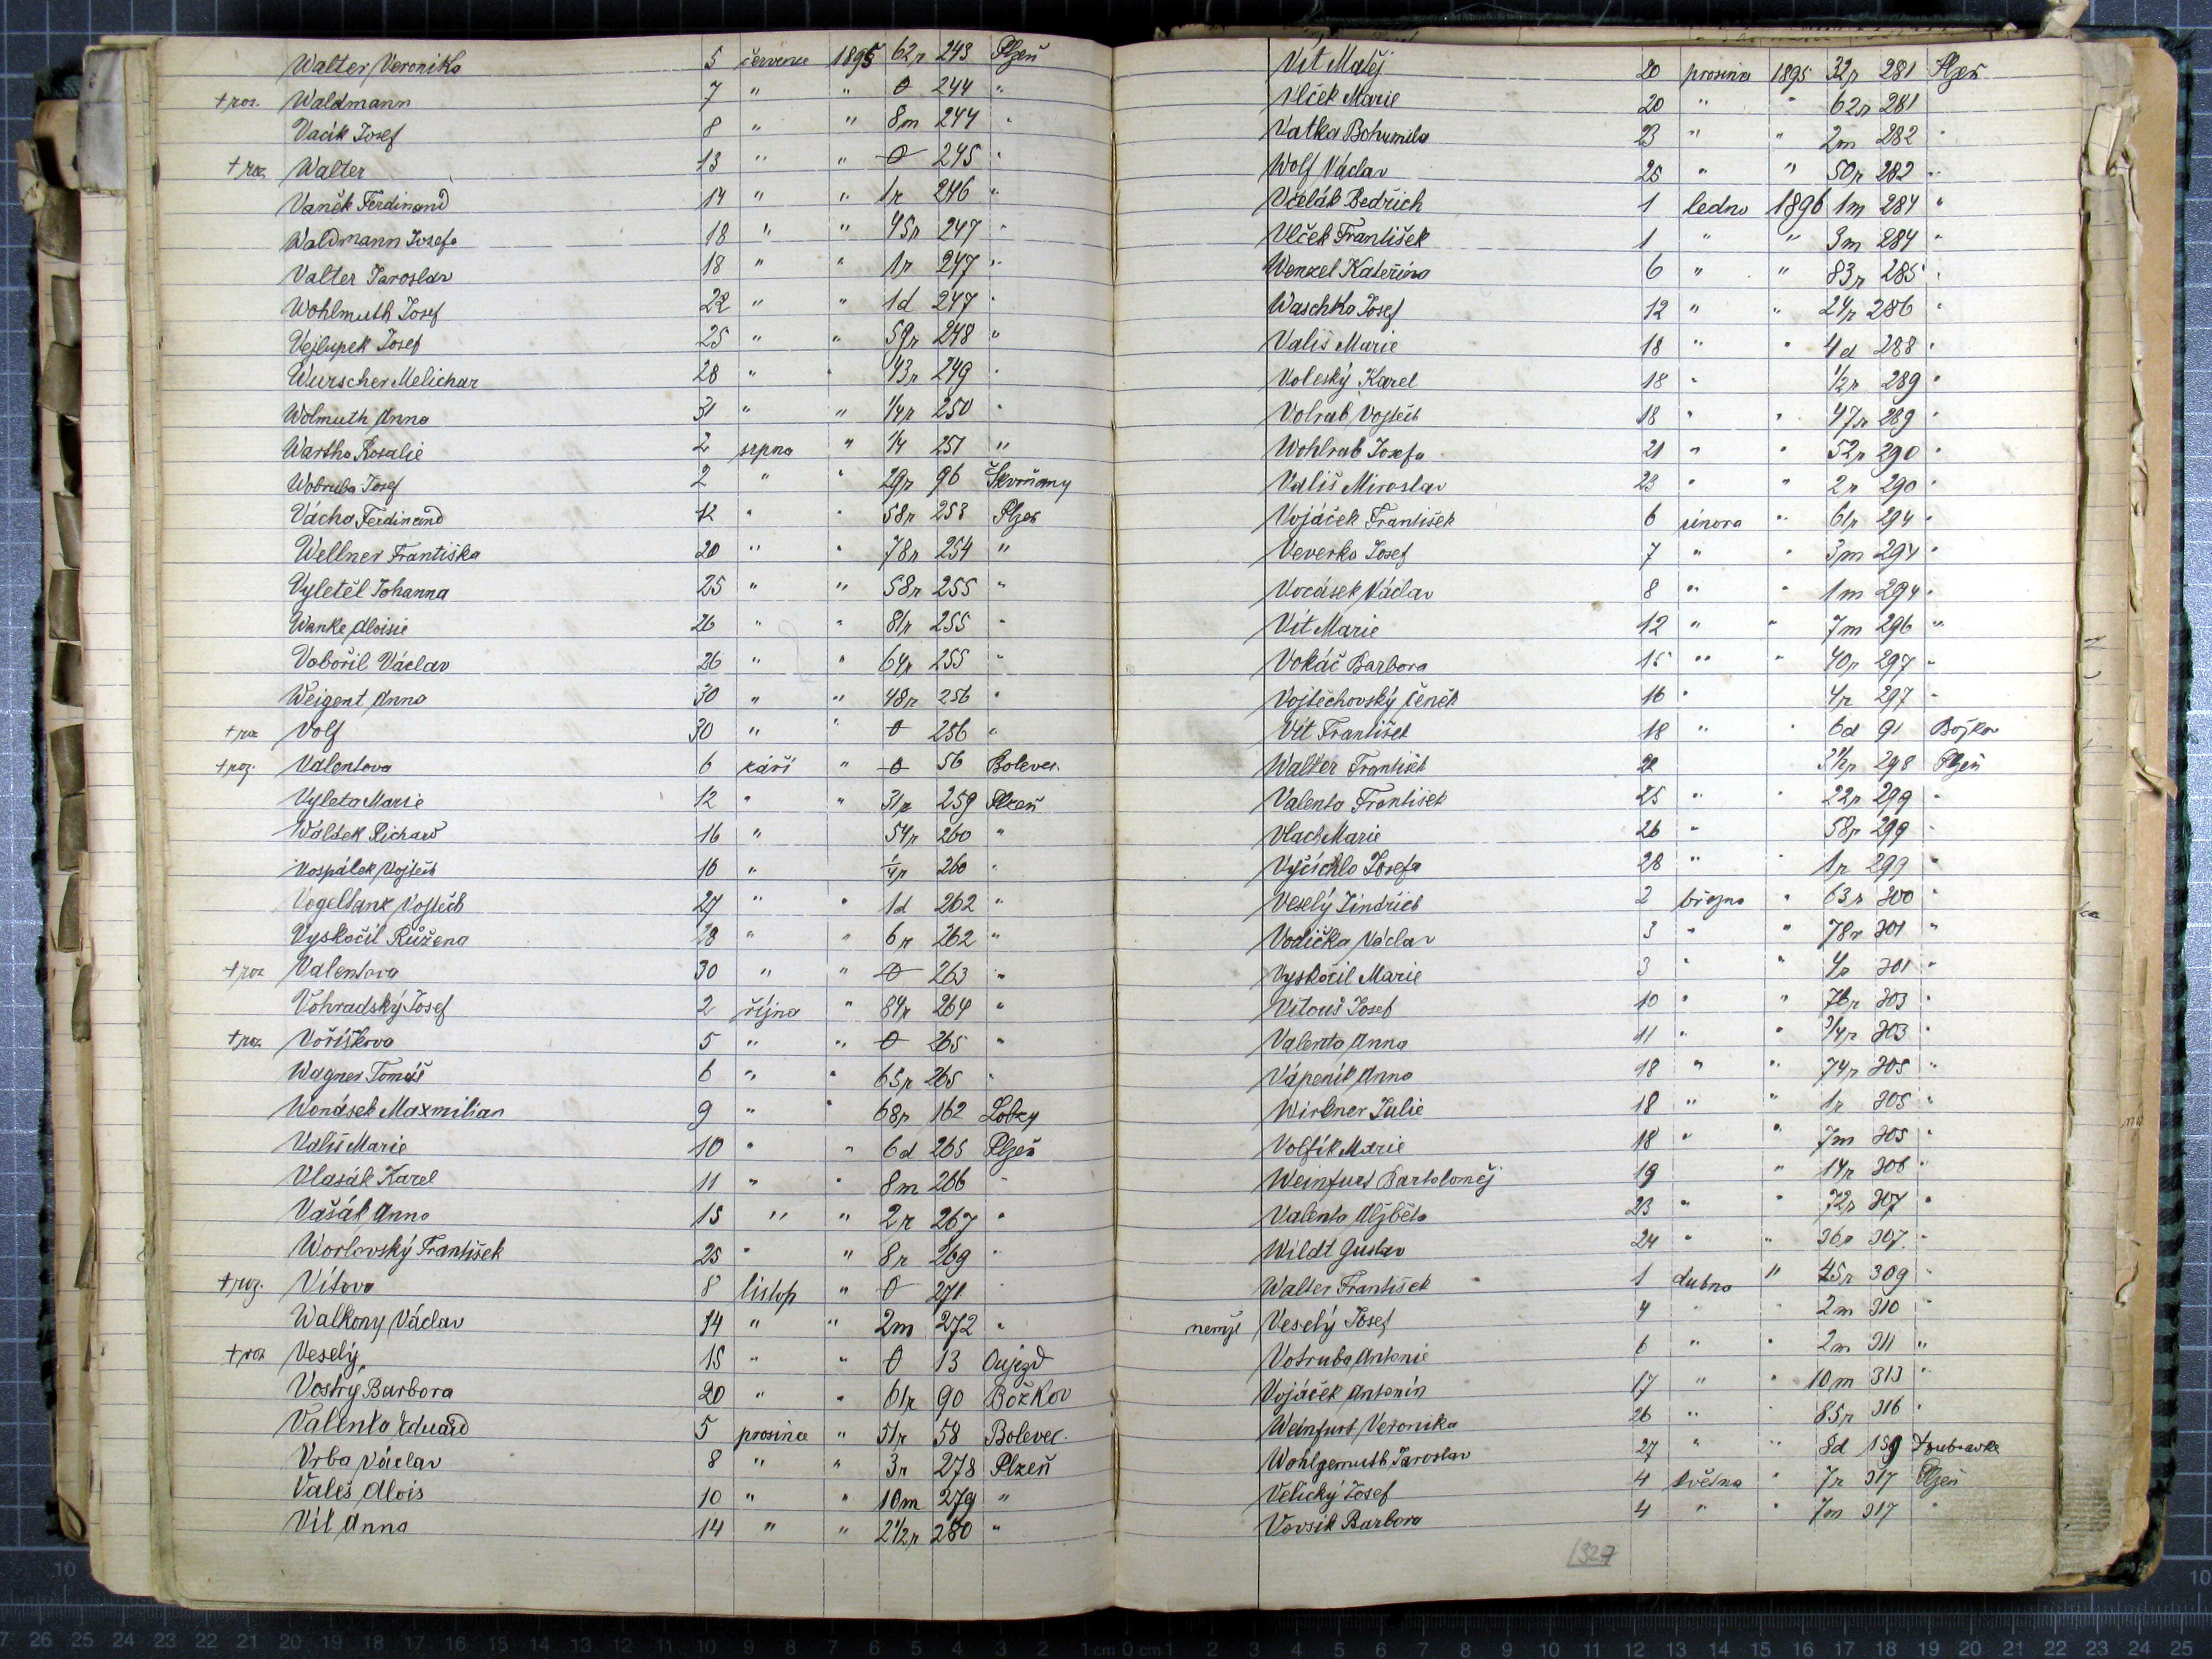 Walter Veronika 5 července 1895 62r 243 Plzeň
+ roz. Waldmann 7 " " 0 244 "
Vacík Josef 8 " " 8m 244 "
+ roz. Walter 13 " " 0 245 "
Vaněk Ferdinand 14 " " 1r 246 "
Waldmann Josefa 18 " " 45r 247 "
Valter Jaroslav 18 " " 1r 247 "
Wohlmuth Josef 22 " " 1d 247 "
Vejlupek Josef 25 " " 59r 248 "
Wurscher Melichar 28 " " 43r 249 "
Wolmuth Anna 31 " " 1/4r 250 "
Wartha Rosalie 2 srpna " 1/4 251 "
Wobruba Josef 2 " " 29r 96 Skvrňany
Vácha Ferdinand 12 " " 58r 253 Plzeň
Wellner Františka 20 " " 78r 254 "
Vyletěl Johanna 25 " " 58r 255 "
Wanke Aloisie 26 " " 81r 255 "
Vobořil Václav 26 " " 64r 255 "
Weigent Anna 30 " " 48r 256 "
+ roz Volf 30 " " 0 256 "
+ roz. Valentova 6 září " 0 56 Bolevec.
Vyleta Marie 12 " " 31r 259 Plzeň
Waltek Richard 16 " 54r 260 "
Vospálek Vojtěch 16 " 1/4r 260 "
Vogeltanz Vojtěch 27 " " 1d 262 "
Vyskočil Růžena 28 " " 6r 262 "
+ roz Valentova 30 " " 0 263 "
Vohradský Josef 2 října " 84r 264 "
+ roz. Voříškova 5 " " 0 265 "
Wagner Tomáš 6 " " 65r 265 "
Wonásek Maxmilian 9 " " 68r 162 Lobzy
Vališ Marie 10 " " 6d 265 Plzeň
Vlasák Karel 11 " " 8m 266 "
Vašák Anna 15 " " 2r 267 "
Worlovský František 25 " " 8r 269 "
+ roz. Vítova 8 listop " 0 271 "
Walkony Václav 14 " " 2m 272 "
+ roz Veselý 15 " " 0 13 Oujezd
Vostrý Barbora 20 " " 61r 90 Božkov
Valenta Eduard 5 prosince " 51r 58 Bolevec.
Vrba Václav 8 " " 3r 278 Plzeň
Valeš Alois 10 " " 10m 279 "
Vít Anna 14 " " 2 1/2r 280 "
Vít Matěj 20 prosince 1895 32r 281 Plzeň
Vlček Marie 20 " " 62r 281
Vatka Bohumila 23 " " 2m 282 "
Wolf Václav 25 " " 50r 282 "
Včelák Bedřich 1 ledna 1896 1m 284 "
Vlček František 1 " " 3m 284 "
Wenzel Kateřina 6 " " 83r 285 "
Waschka Josef 12 " " 24r 286 "
Vališ Marie 18 " " 4d 288 "
Voleský Karel 18 " 1/2r 289 "
Volrab Vojtěch 18 " " 47r 289 "
Wohlrab Josefa 21 " " 52r 290 "
Vališ Miroslav 23 " " 2r 290 "
Vojáček František 6 února " 61r 294 "
Veverka Josef 7 " " 3m 294 "
Vocásek Václav 8 " " 1m 294 "
Vít Marie 12 " " 7m 296 "
Vokáč Barbora 15 " " 40r 297 "
Vojtěchovský Čeněk 16 " 4r 297 "
Vít František 18 " " 6d 91 Božkov
Walter František 22 3 1/2r 298 Plzeň
Valenta František 25 " " 22r 299 "
Vlach Marie 26 " 58r 299 "
Vyčichlo Josefa 28 " " 1r 299 "
Veselý Jindřich 2 března " 63r 300 "
Vodička Václav 3 " " 78r 301 "
Vyskočil Marie 3 " " 4r 301 "
Vitouš Josef 10 " " 76r 303 "
Valenta Anna 11 " " 3/4r 303 "
Vápeník Anna 18 " " 74r 305 "
Wirkner Julie 18 " " 1r 305 "
Volfík Marie 18 " " 7m 305 "
Weinfurt Bartoloměj 19 " 14r 306 "
Valenta Alžběta 23 " " 72r 307 "
Wildt Gustav 24 " " 36r 307 "
Walter František 1 dubna " 45r 309 "
Veselý Josef 4 " " 2m 310 "
Votruba Antonie 6 " " 2m 311 "
Vojáček Antonín 17 " " 10m 313 "
Weinfurt Veronika 26 " " 85r 316 "
Wohlgemuth Jaroslav 27 " " 8d 159 Doubravka
Velický Josef 4 května " 7r 317 Plzeň
Vovsík Barbora 4 " " 7m 317 "
327